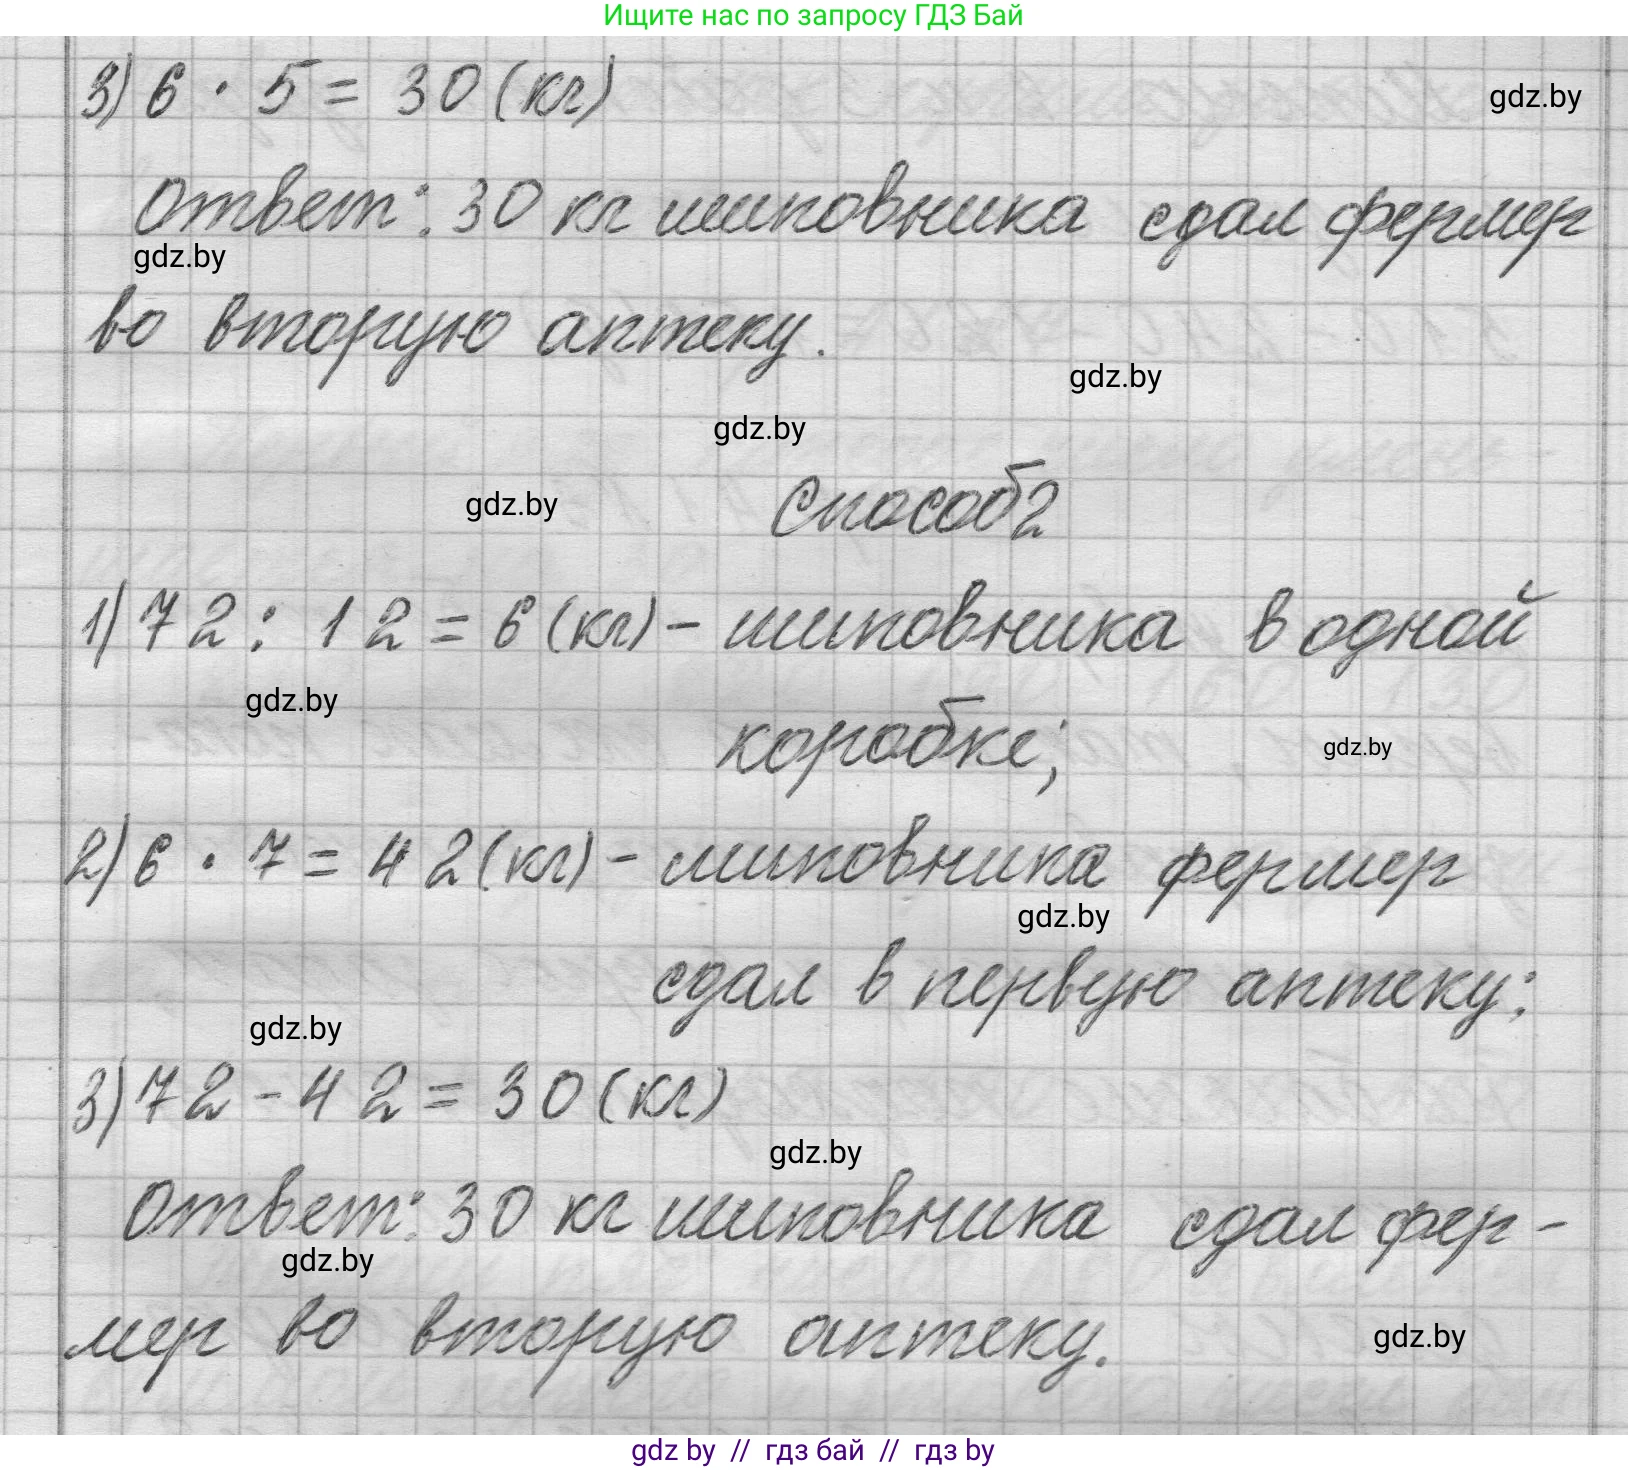 Ищите нас по запросу ГДЗ Бай
3) 6 · 5 = 30 (кг)
gdz.by
Ответ: 30 кг шиповника сдал фермер
gdz.by
во вторую аптеку.
gdz.by
gdz.by
Способ 2
gdz.by
1) 72 : 12 = 6 (кг) – шиповника в одной
gdz.by
коробке;
gdz.by
2) 6 · 7 = 42 (кг) – шиповника фермер
gdz.by
сдал в первую аптеку;
gdz.by
3) 72 - 42 = 30 (кг)
gdz.by
Ответ: 30 кг шиповника сдал фер-
gdz.by
мер во вторую аптеку.
gdz.by
gdz by // гдз бай // гдз by